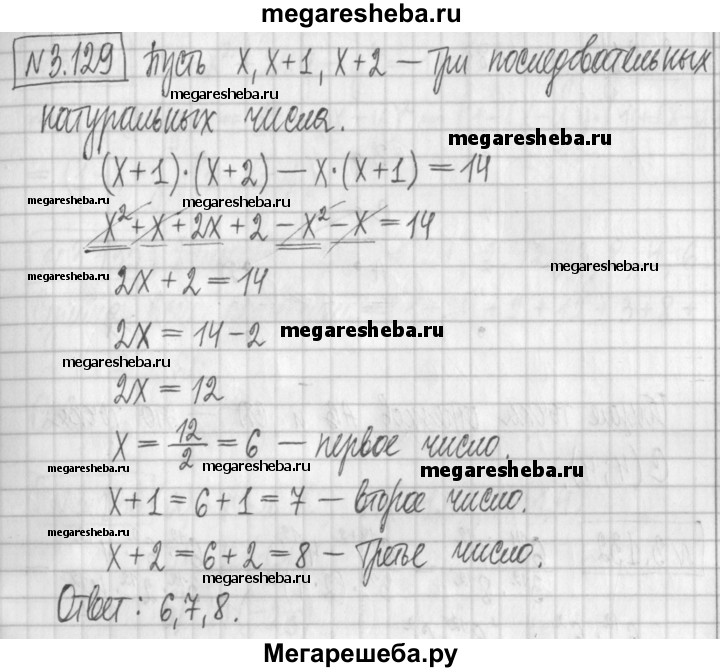 megaresheba.ru
№3.129 Пусть x, x+1, x+2 – три последовательных
megaresheba.ru
натуральных числа.
megaresheba.ru
(x+1)·(x+2) – x·(x+1) = 14
megaresheba.ru megaresheba.ru
x² + x + 2x + 2 – x² – x = 14
megaresheba.ru
2x + 2 = 14
megaresheba.ru
2x = 14 – 2
megaresheba.ru
megaresheba.ru
2x = 12
x = 12/2 = 6 – первое число.
megaresheba.ru megaresheba.ru
x+1 = 6+1 = 7 – второе число.
megaresheba.ru
x+2 = 6+2 = 8 – третье число.
megaresheba.ru
Ответ: 6,7,8.
Мегарешеба.ру